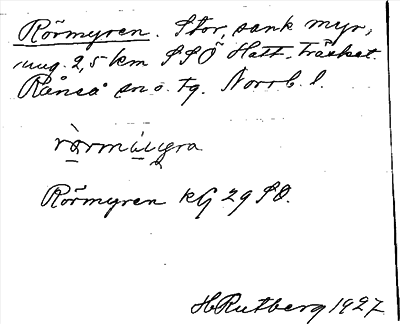 Rörmyren. Stor, sank myr,
ung. 2,5 km SSÖ Hatt-träsket.
Råneå sn o. tg. Norrb. l.
Rörmyren kG 29 SO.
H Rutberg 1927